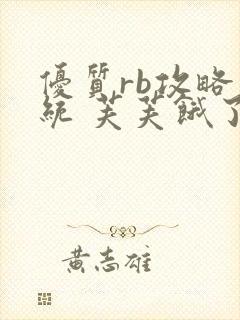 優質rb攻略
統 芙芙餓了
黃志雄